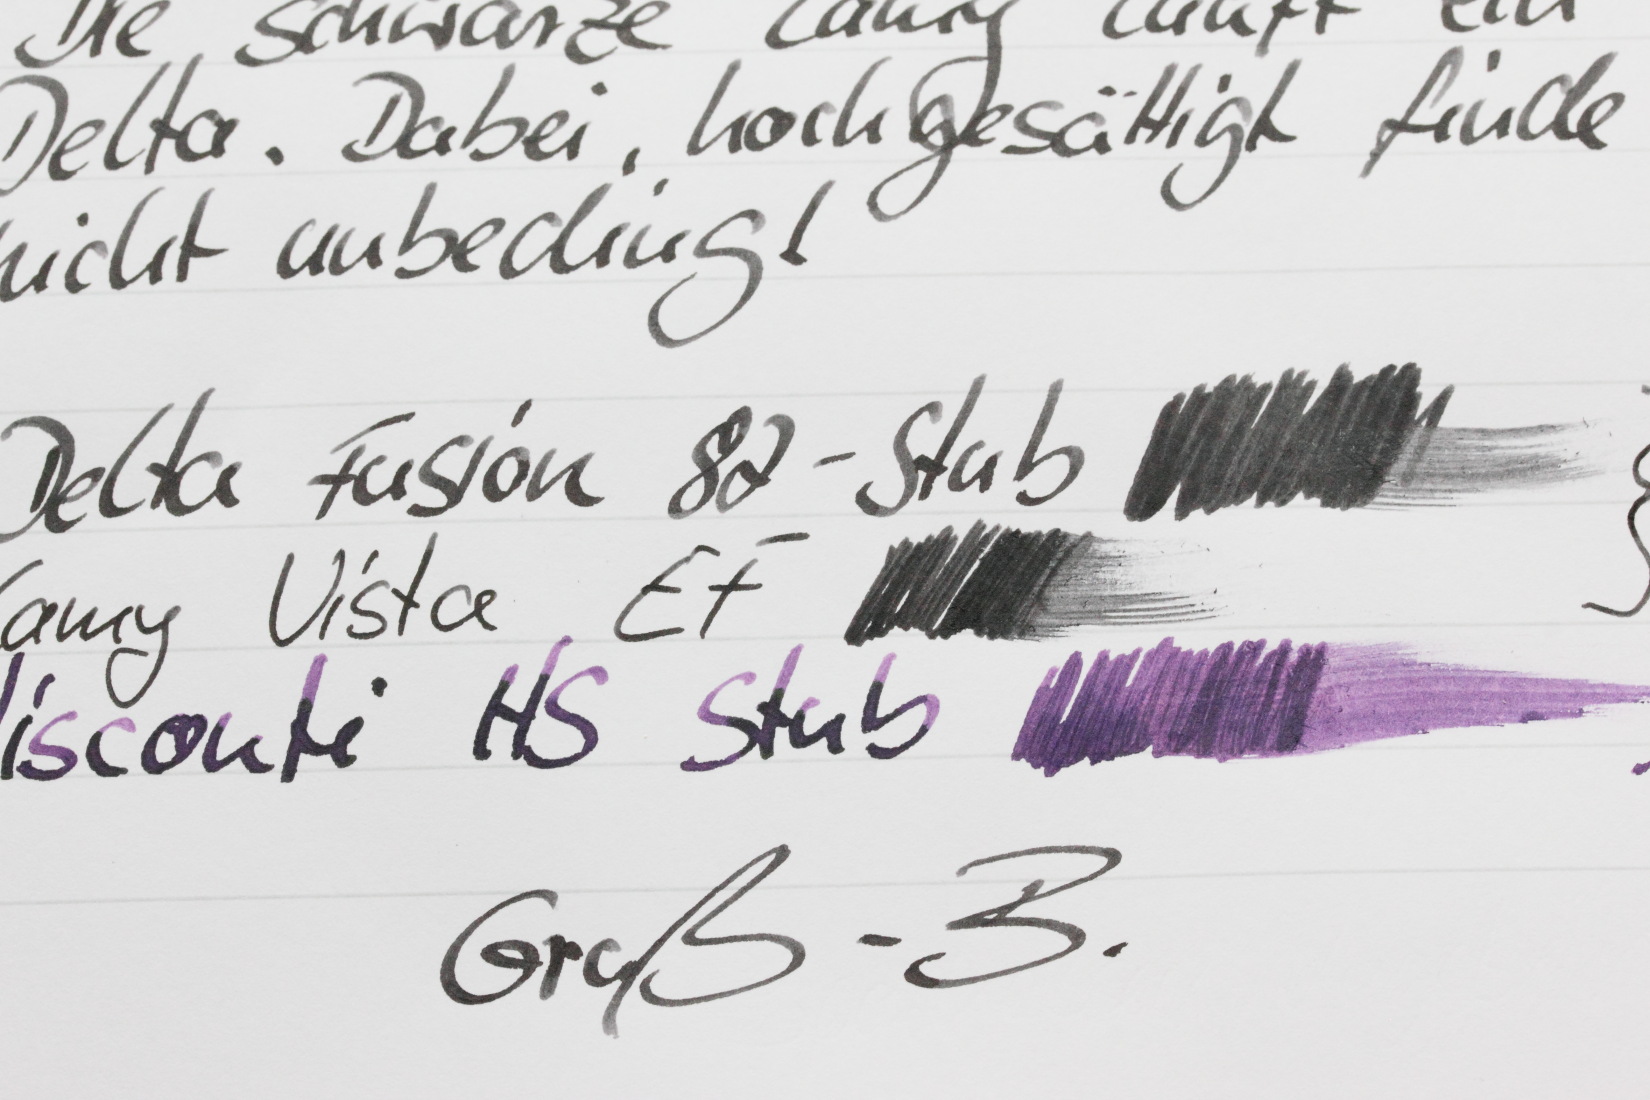 Die schwarze Lamy läuft ein
Delta. Dabei, hochgesättigt finde
nicht unbeding!
Delta Fusion 82-Stub
Lamy Vista EF
Visconti HS Stub
Gruß - B.